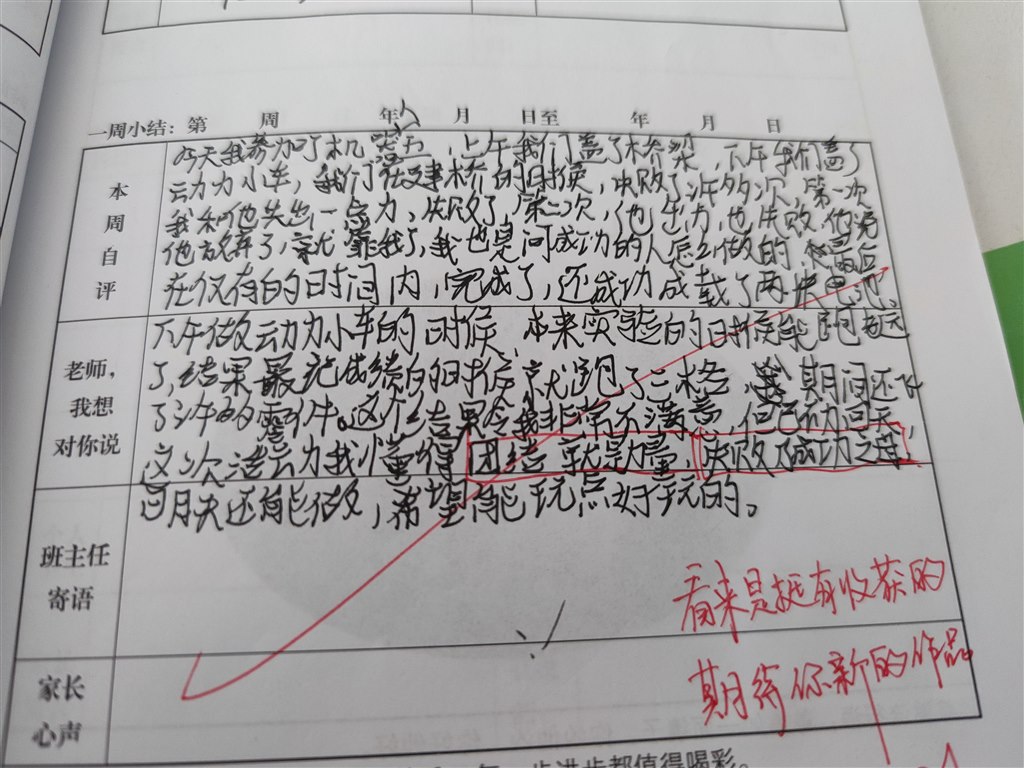 一周小结：第 周 年 月 日至 年 月 日
本周自评
今天我参加了机器人，上午我们盖了桥梁，下午我们盖了
动力小车，我们在建桥的时候，失败了许多次，第一次
我和他失出一点力，失败了，第二次，他出力，也失败，他说
他放弃了，就靠我了，我也是问成功的人怎么做的，
在仅有的时间内，完成了，还成功成载了两块电池。
老师，我想对你说
下午做动力小车的时候，本来实验的时候能跑超远
了，结果最完成绩的时候，就跑了三格，期间还
了许多零件。这个结果令我非常不满意，但
这次活动为我懂得团结就是力量，失败了成功之母，
下月失还能做，希望能玩点好玩的。
班主任寄语
看来是挺有收获的
期待你新的作品。
家长心声
步进步都值得喝彩。